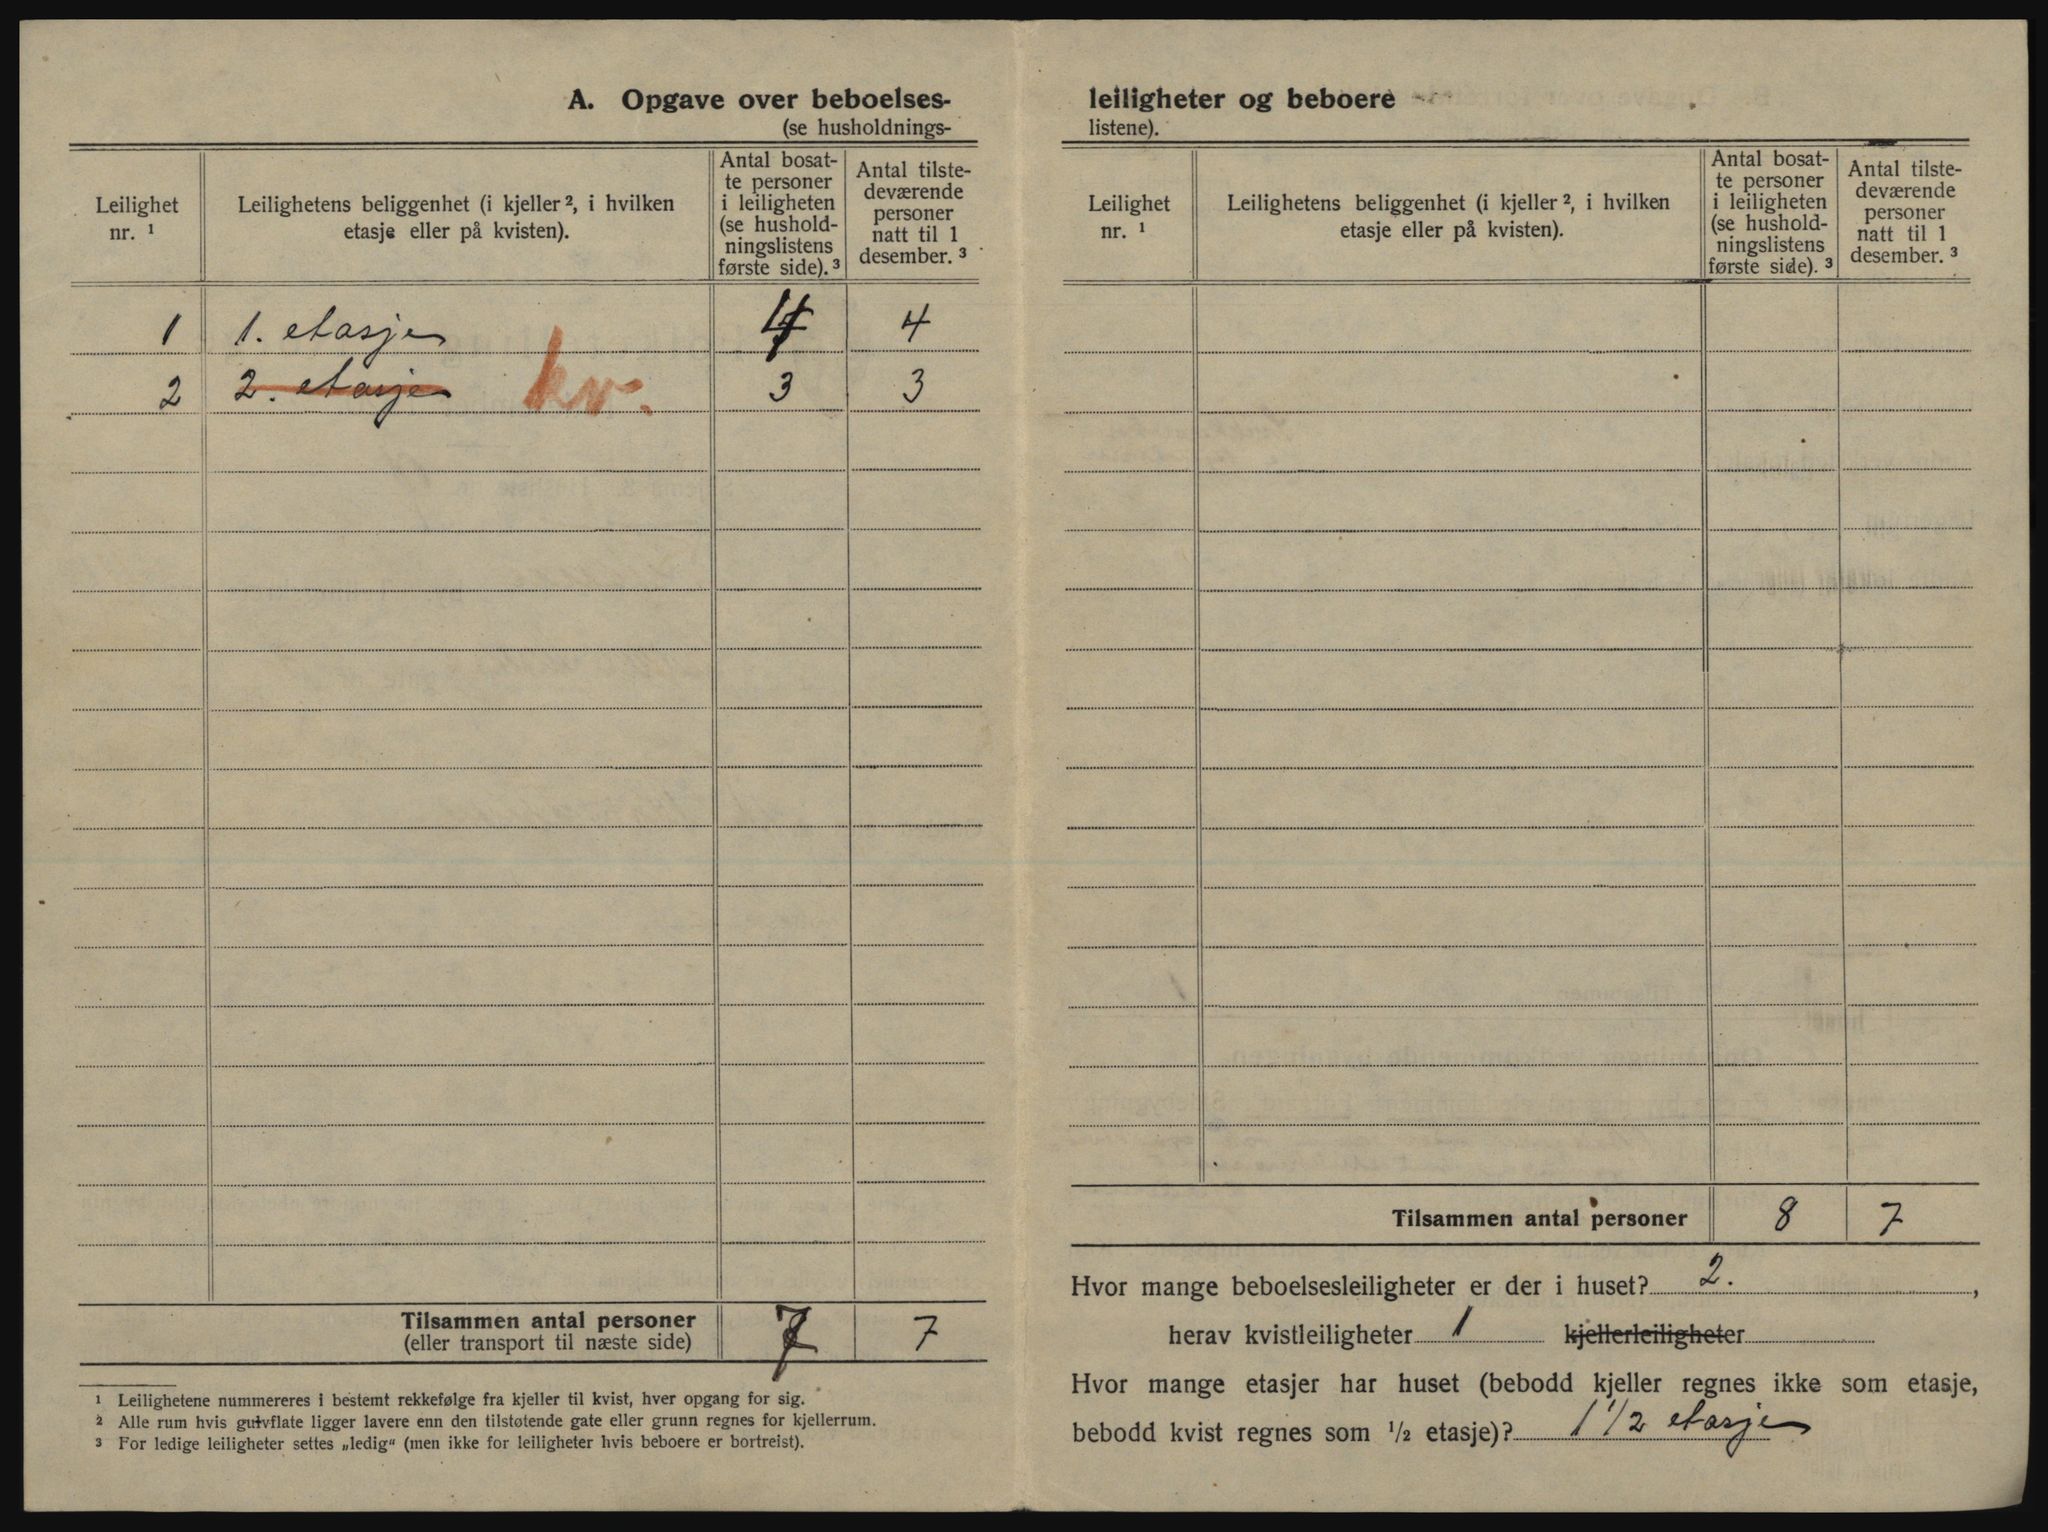 A. Opgave over beboelses-
(se husholdnings-
Leilighet
nr. ¹
Leilighetens beliggenhet (i kjeller ², i hvilken
etasje eller på kvisten).
Antal bosat-
te personer
i leiligheten
(se hushold-
ningslistens
første side). ³
Antal tilste-
deværende
personer
natt til 1
desember. ³
1 1. etasje 4 4
2 2. etasje kv. 3 3
Tilsammen antal personer
(eller transport til næste side) 7 7
¹ Leilighetene nummereres i bestemt rekkefølge fra kjeller til kvist, hver opgang for sig.
² Alle rum hvis gulvflate ligger lavere enn den tilstøtende gate eller grunn regnes for kjellerrum.
³ For ledige leiligheter settes „ledig“ (men ikke for leiligheter hvis beboere er bortreist).
leiligheter og beboere
listene).
Leilighet
nr. ¹
Leilighetens beliggenhet (i kjeller ², i hvilken
etasje eller på kvisten).
Antal bosat-
te personer
i leiligheten
(se hushold-
ningslistens
første side). ³
Antal tilste-
deværende
personer
natt til 1
desember. ³
Tilsammen antal personer 8 7
Hvor mange beboelsesleiligheter er der i huset? 2. ,
herav kvistleiligheter 1 kjellerleiligheter
Hvor mange etasjer har huset (bebodd kjeller regnes ikke som etasje,
bebodd kvist regnes som ½ etasje)? 1 1/2 etasje